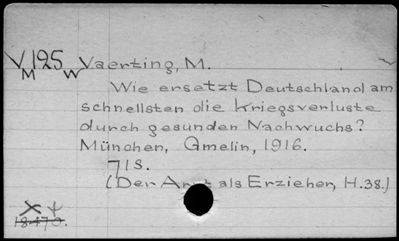 VM195W Vaerting, M.
Wie ersetzt Deutschland am
schnellsten die Kriegsverluste
durch gesunden Nachwuchs?
München, Gmelin, 1916.
71S.
(Der Arzt als Erzieher, H.38.)
18470.